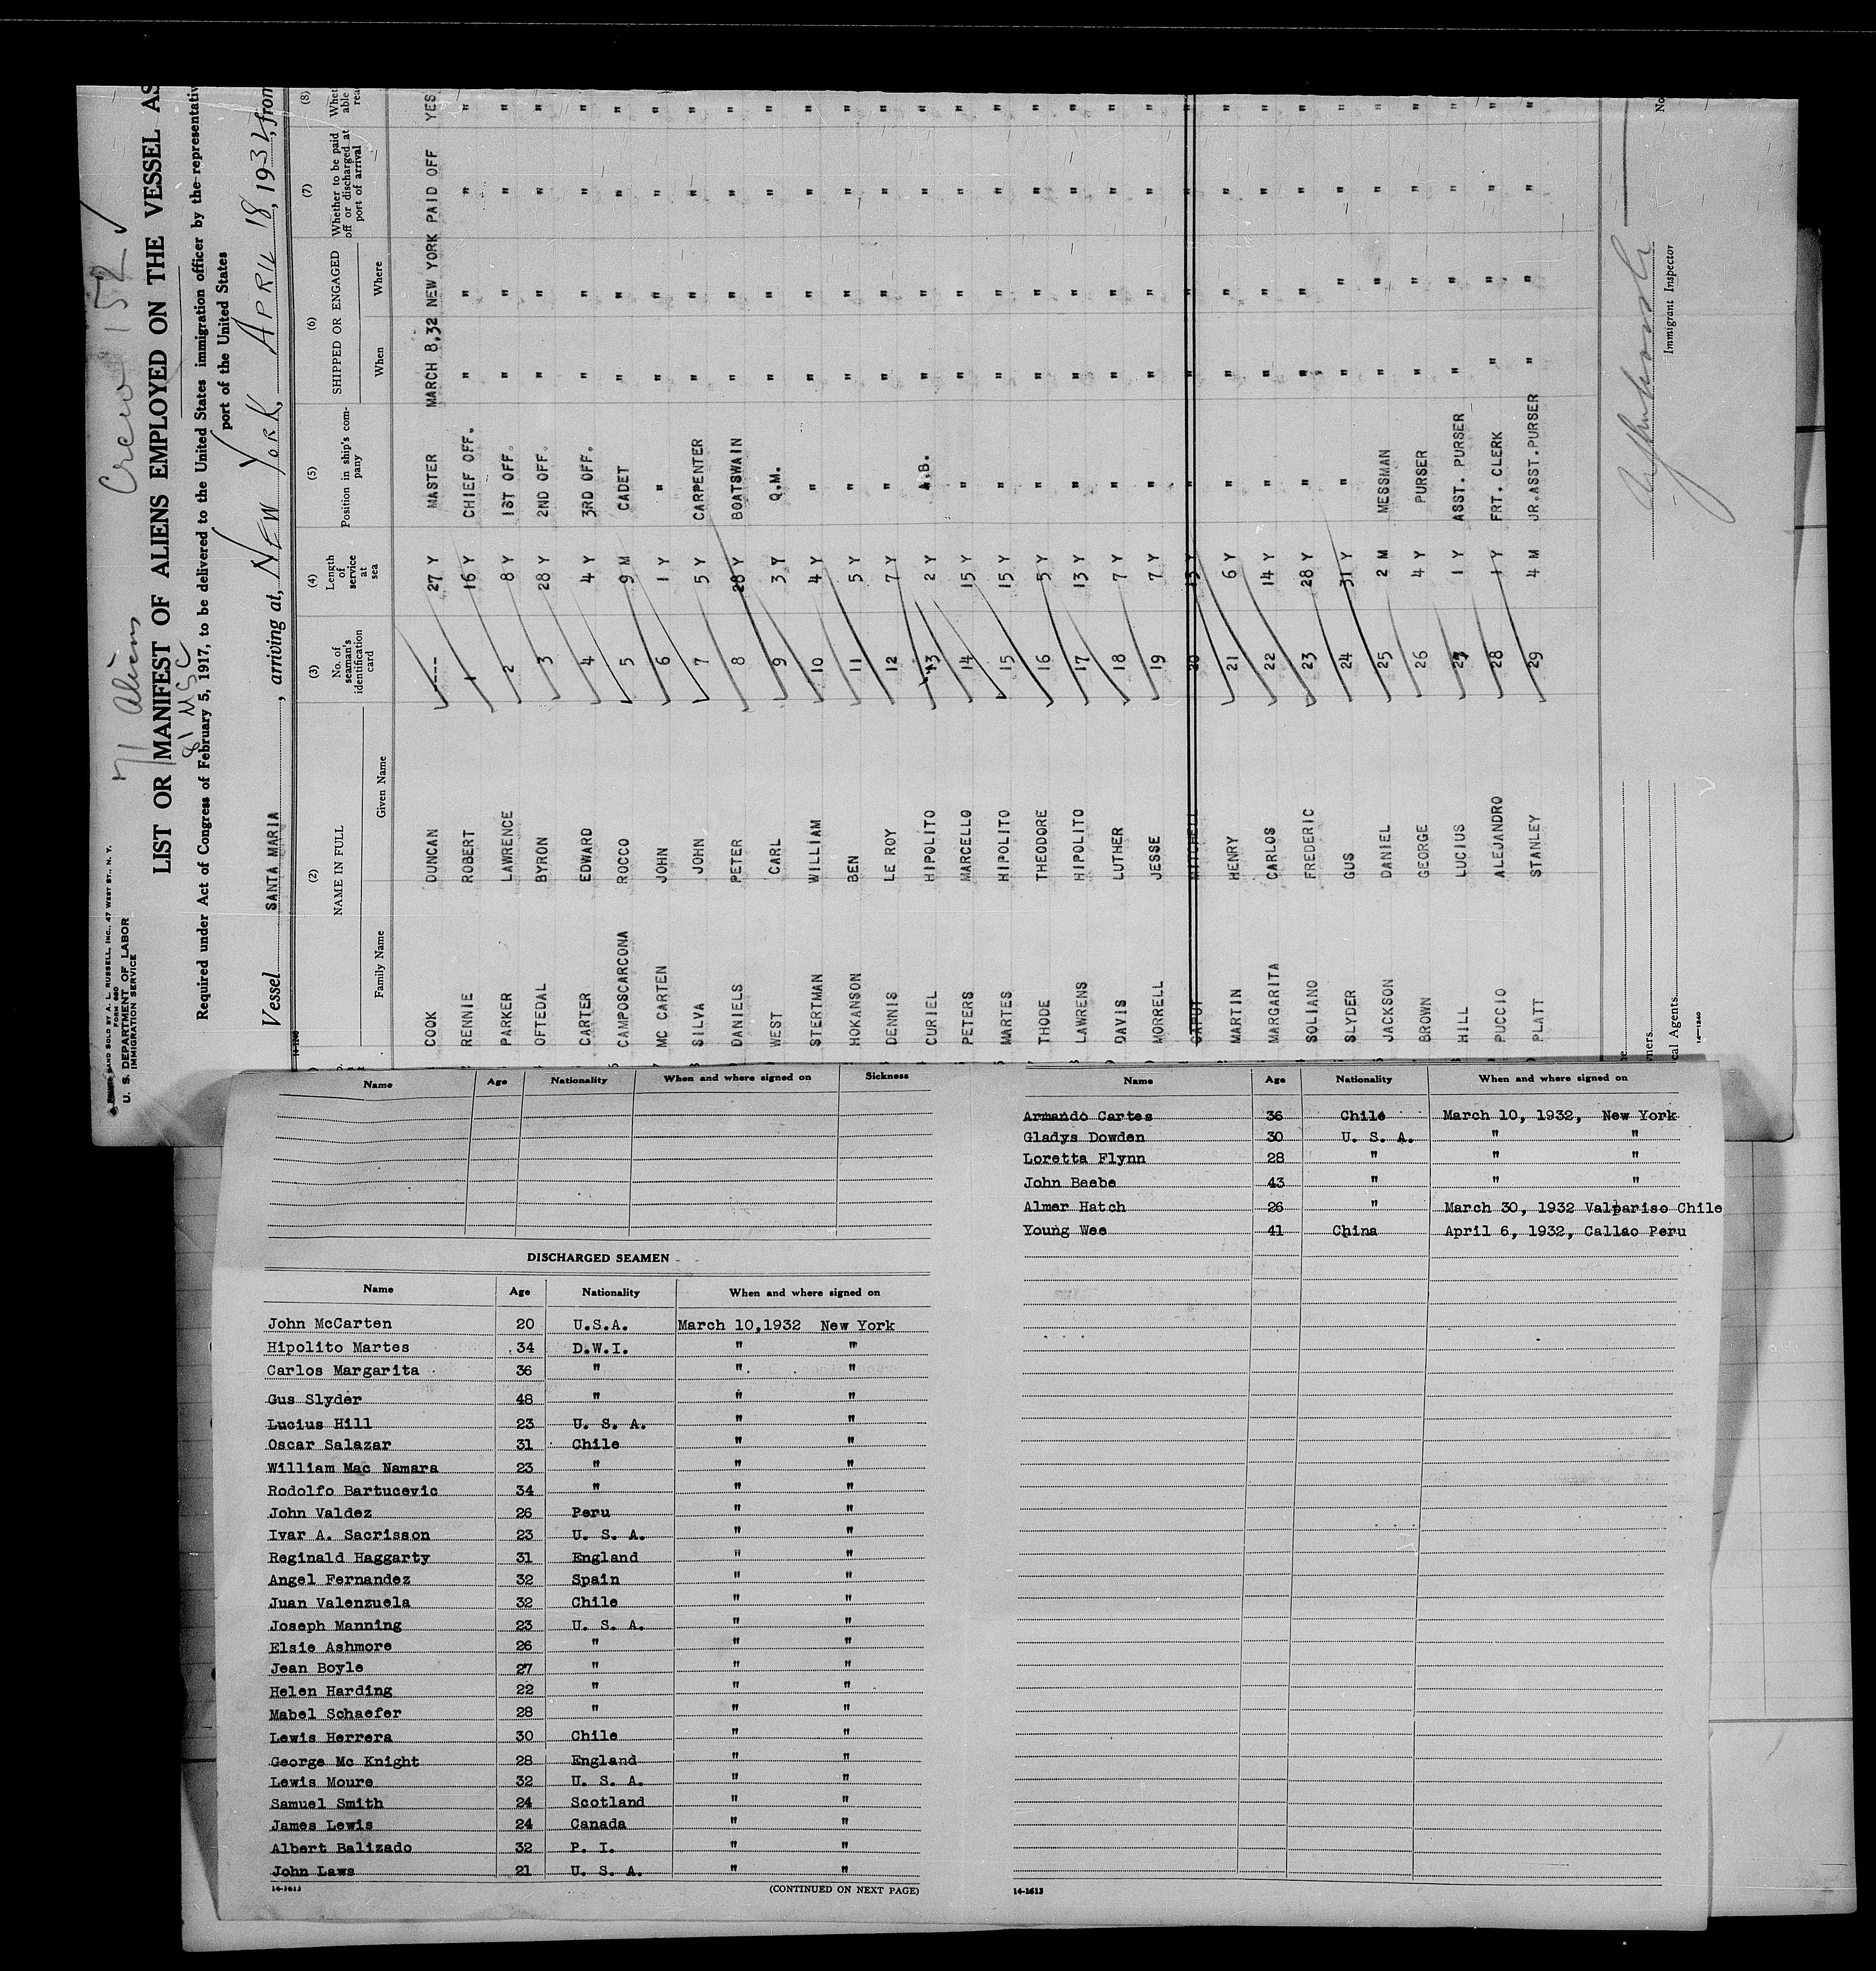 Crew 152 ✓
71 Aliens
81 USC
PRINTED AND SOLD BY A. L. RUSSELL, INC., 47 WEST ST., N. Y.
FORM 680
U. S. DEPARTMENT OF LABOR
IMMIGRATION SERVICE
LIST OR MANIFEST OF ALIENS EMPLOYED ON THE VESSEL AS
Required under Act of Congress of February 5, 1917, to be delivered to the United States immigration officer by the representativ
port of the United States
Vessel SANTA MARIA, arriving at, NEW YORK, APRIL 18, 1932, from
14-1240
(2) (3) (4) (5) (6) (7) (8)
NAME IN FULL No. of seaman's identification card Length of service at sea Position in ship's com-pany SHIPPED OR ENGAGED Whether to be paid off or discharged at port of arrival Whet able rea
Family Name Given Name When Where
COOK DUNCAN ---- 27 Y MASTER MARCH 8,32 NEW YORK PAID OFF YES
RENNIE ROBERT 1 16 Y CHIEF OFF. " " " "
PARKER LAWRENCE 2 8 Y 1ST OFF. " " " "
OFTEDAL BYRON 3 28 Y 2ND OFF. " " " "
CARTER EDWARD 4 4 Y 3RD OFF. " " " "
CAMPOSCARCONA ROCCO 5 9 M CADET " " " "
MC CARTEN JOHN 6 1 Y " " " " "
SILVA JOHN 7 5 Y CARPENTER " " " "
DANIELS PETER 8 28 Y BOATSWAIN " " " "
WEST CARL 9 3 Y Q.M. " " " "
STERTMAN WILLIAM 10 4 Y " " " " "
HOKANSON BEN 11 5 Y " " " " "
DENNIS LE ROY 12 7 Y " " " " "
CURIEL HIPOLITO 13 2 Y A.B. " " " "
PETERS MARCELLO 14 15 Y " " " " "
MARTES HIPOLITO 15 15 Y " " " " "
THODE THEODORE 16 5 Y " " " " "
LAWRENS HIPOLITO 17 13 Y " " " " "
DAVIS LUTHER 18 7 Y " " " " "
MORRELL JESSE 19 7 Y " " " " "
CAPUT MITCHELL 20 13 Y " " " " "
MARTIN HENRY 21 6 Y " " " " "
MARGARITA CARLOS 22 14 Y " " " " "
SOLIANO FREDERIC 23 28 Y " " " " "
SLYDER GUS 24 31 Y " " " " "
JACKSON DANIEL 25 2 M MESSMAN " " " "
BROWN GEORGE 26 4 Y PURSER " " " "
HILL LUCIUS 27 1 Y ASST. PURSER " " " "
PUCCIO ALEJANDRO 28 1 Y FRT. CLERK " " " "
PLATT STANLEY 29 4 M JR.ASST.PURSER " " " "
Immigrant Inspector
No
wners
cal Agents
14-1240
Name Age Nationality When and where signed on Sickness
DISCHARGED SEAMEN
Name Age Nationality When and where signed on
John McCarten 20 U.S.A. March 10,1932 New York
Hipolito Martes 34 D.W.I. " "
Carlos Margarita 36 " " "
Gus Slyder 48 " " "
Lucius Hill 23 U. S. A. " "
Oscar Salazar 31 Chile " "
William Mac Namara 23 " " "
Rodolfo Bartucevic 34 " " "
John Valdez 26 Peru " "
Ivar A. Sacrisson 23 U. S. A. " "
Reginald Haggarty 31 England " "
Angel Fernandez 32 Spain " "
Juan Valenzuela 32 Chile " "
Joseph Manning 23 U. S. A. " "
Elsie Ashmore 26 " " "
Jean Boyle 27 " " "
Helen Harding 22 " " "
Mabel Schaefer 28 " " "
Lewis Herrera 30 Chile " "
George Mc Knight 28 England " "
Lewis Moure 32 U. S. A. " "
Samuel Smith 24 Scotland " "
James Lewis 24 Canada " "
Albert Balizado 32 P. I. " "
John Laws 21 U. S. A. " "
14-1613 (CONTINUED ON NEXT PAGE)
Name Age Nationality When and where signed on
Armando Cartes 36 Chile March 10, 1932, New York
Gladys Dowden 30 U. S. A. " "
Loretta Flynn 28 " " "
John Beebe 43 " " "
Almer Hatch 26 " March 30, 1932 Valpariso Chile
Young Wee 41 China April 6, 1932, Callao Peru
14-1613